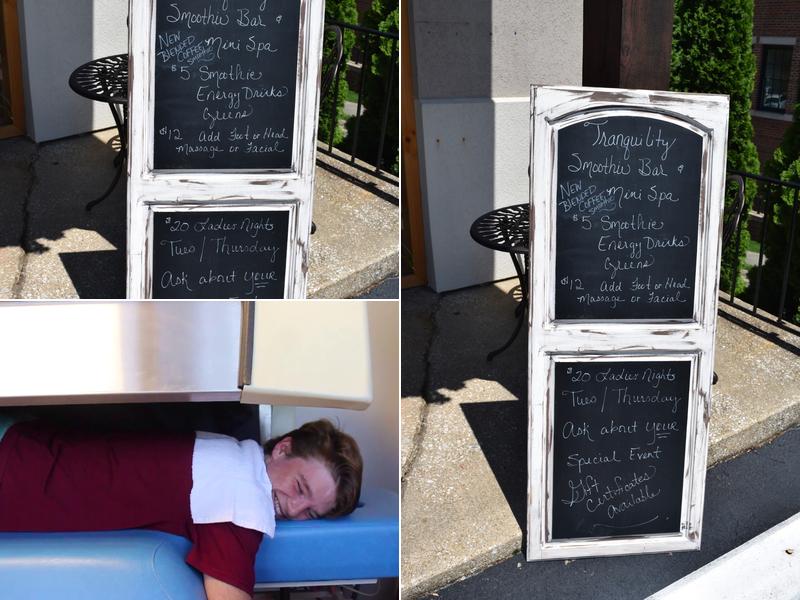 Smoothie Bar &
NEW BLENDED COFFEE Smoothie
Mini Spa
$5 Smoothie
Energy Drinks
Greens
$12 Add Foot or Hand
Massage or Facial
$20 Ladies Nights
Tues / Thursday
Ask about your
Tranquility
Smoothie Bar &
NEW BLENDED COFFEE Smoothie
Mini Spa
$5 Smoothie
Energy Drinks
Greens
$12 Add Foot or Head
Massage or Facial
$20 Ladies Nights
Tues / Thursday
Ask about your
Special Event
Gift
Certificates
Available